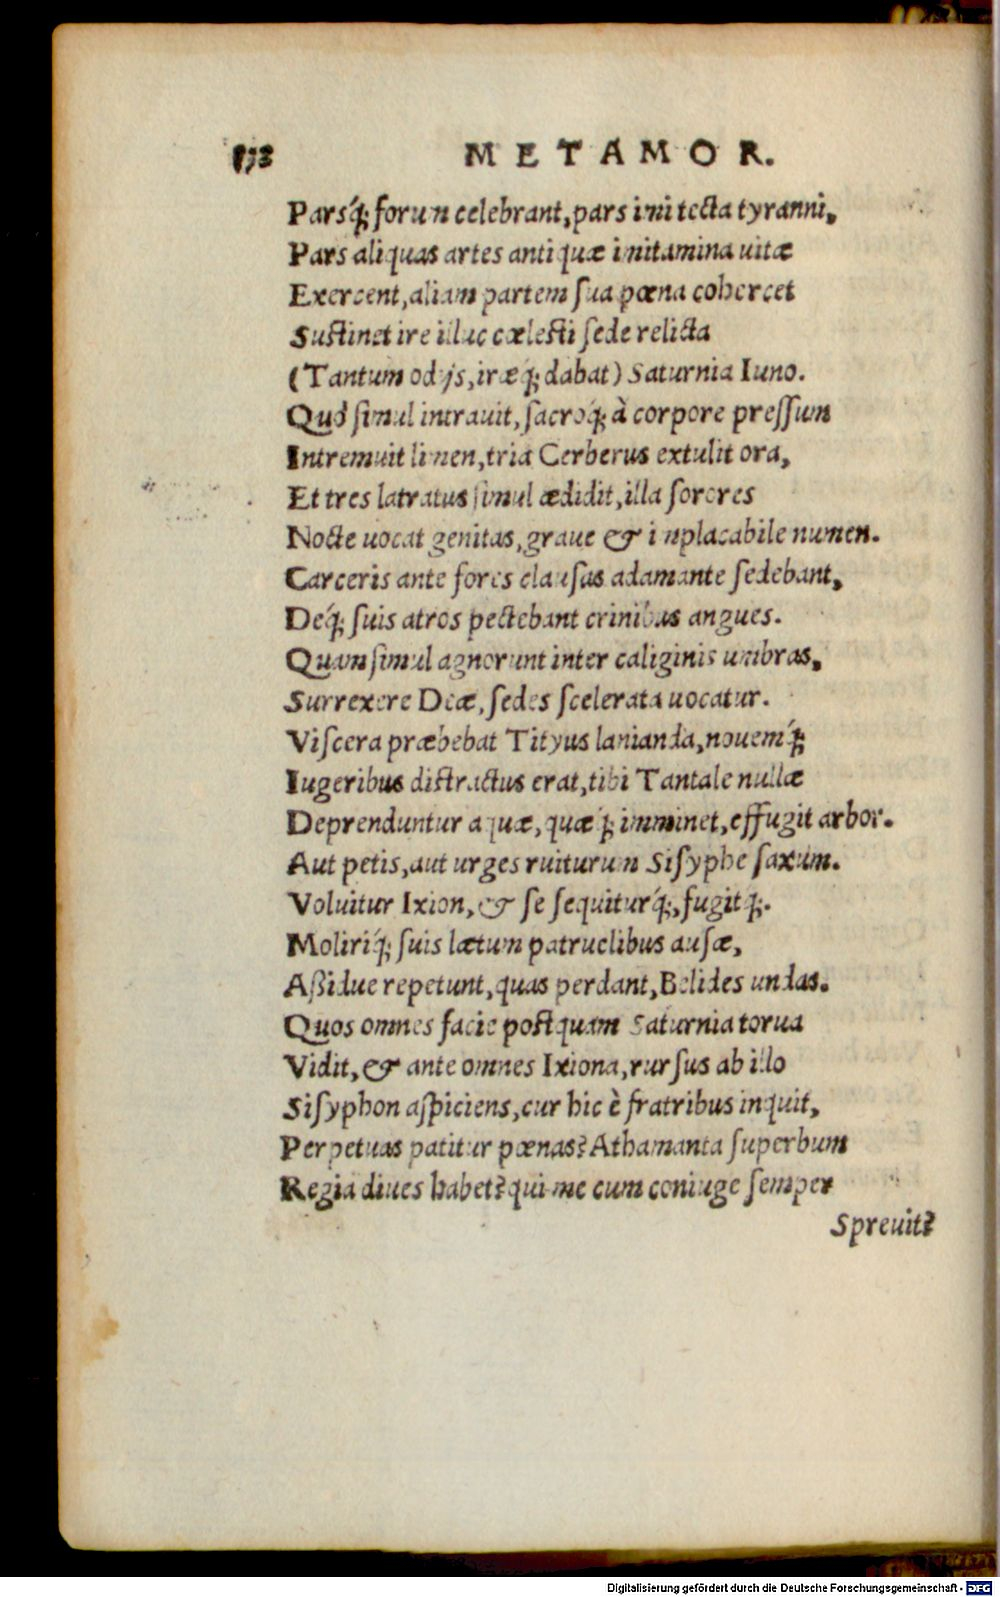 METAMOR.
Parsq́; forum celebrant, pars imi tecta tyranni,
Pars aliquas artes antiquæ imitamina uitæ
Exercent, aliam partem sua pœna cohercet
Sustinet ire illuc cælesti sede relicta
(Tantum odijs, iræq́; dabat) Saturnia Iuno.
Quò simul intrauit, sacroq́; à corpore pressum
Intremuit limen, tria Cerberus extulit ora,
Et tres latratus simul ædidit, illa sorores
Nocte uocat genitas, graue & implacabile numen.
Carceris ante fores clausas adamante sedebant,
Deq́; suis atros pectebant crinibus angues.
Quam simul agnorunt inter caliginis umbras,
Surrexere Deæ, sedes scelerata uocatur.
Viscera præbebat Tityus lanianda, nouemq́;
Iugeribus distractus erat, tibi Tantale nullæ
Deprenduntur aquæ, quæq́; imminet, effugit arbor.
Aut petis, aut urges ruiturum Sisyphe saxum.
Voluitur Ixion, & se sequiturq́;, fugitq;.
Moliriq́; suis lætum patruelibus ausæ,
Aßidue repetunt, quas perdant, Belides undas.
Quos omnes facie postquam Saturnia torua
Vidit, & ante omnes Ixiona, rursus ab illo
Sisyphon aspiciens, cur hic è fratribus inquit,
Perpetuas patitur pœnas? Athamanta superbum
Regia diues habet? qui me cum coniuge semper
Spreuit?
Digitalisierung gefördert durch die Deutsche Forschungsgemeinschaft - DFG